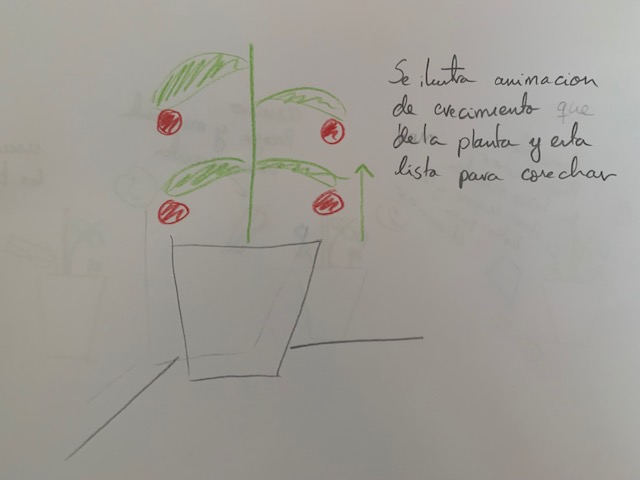 Se ilustra animacion
de crecimiento que
de la planta y esta
lista para cosechar